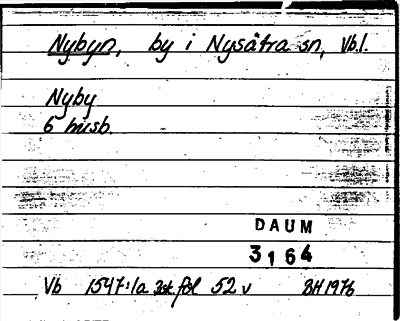 Nybyn, by i Nysätra sn, Vb.l.
Nyby
6 hush.
DAUM
3164
Vb 1547:1a fol 52 v BH 1976